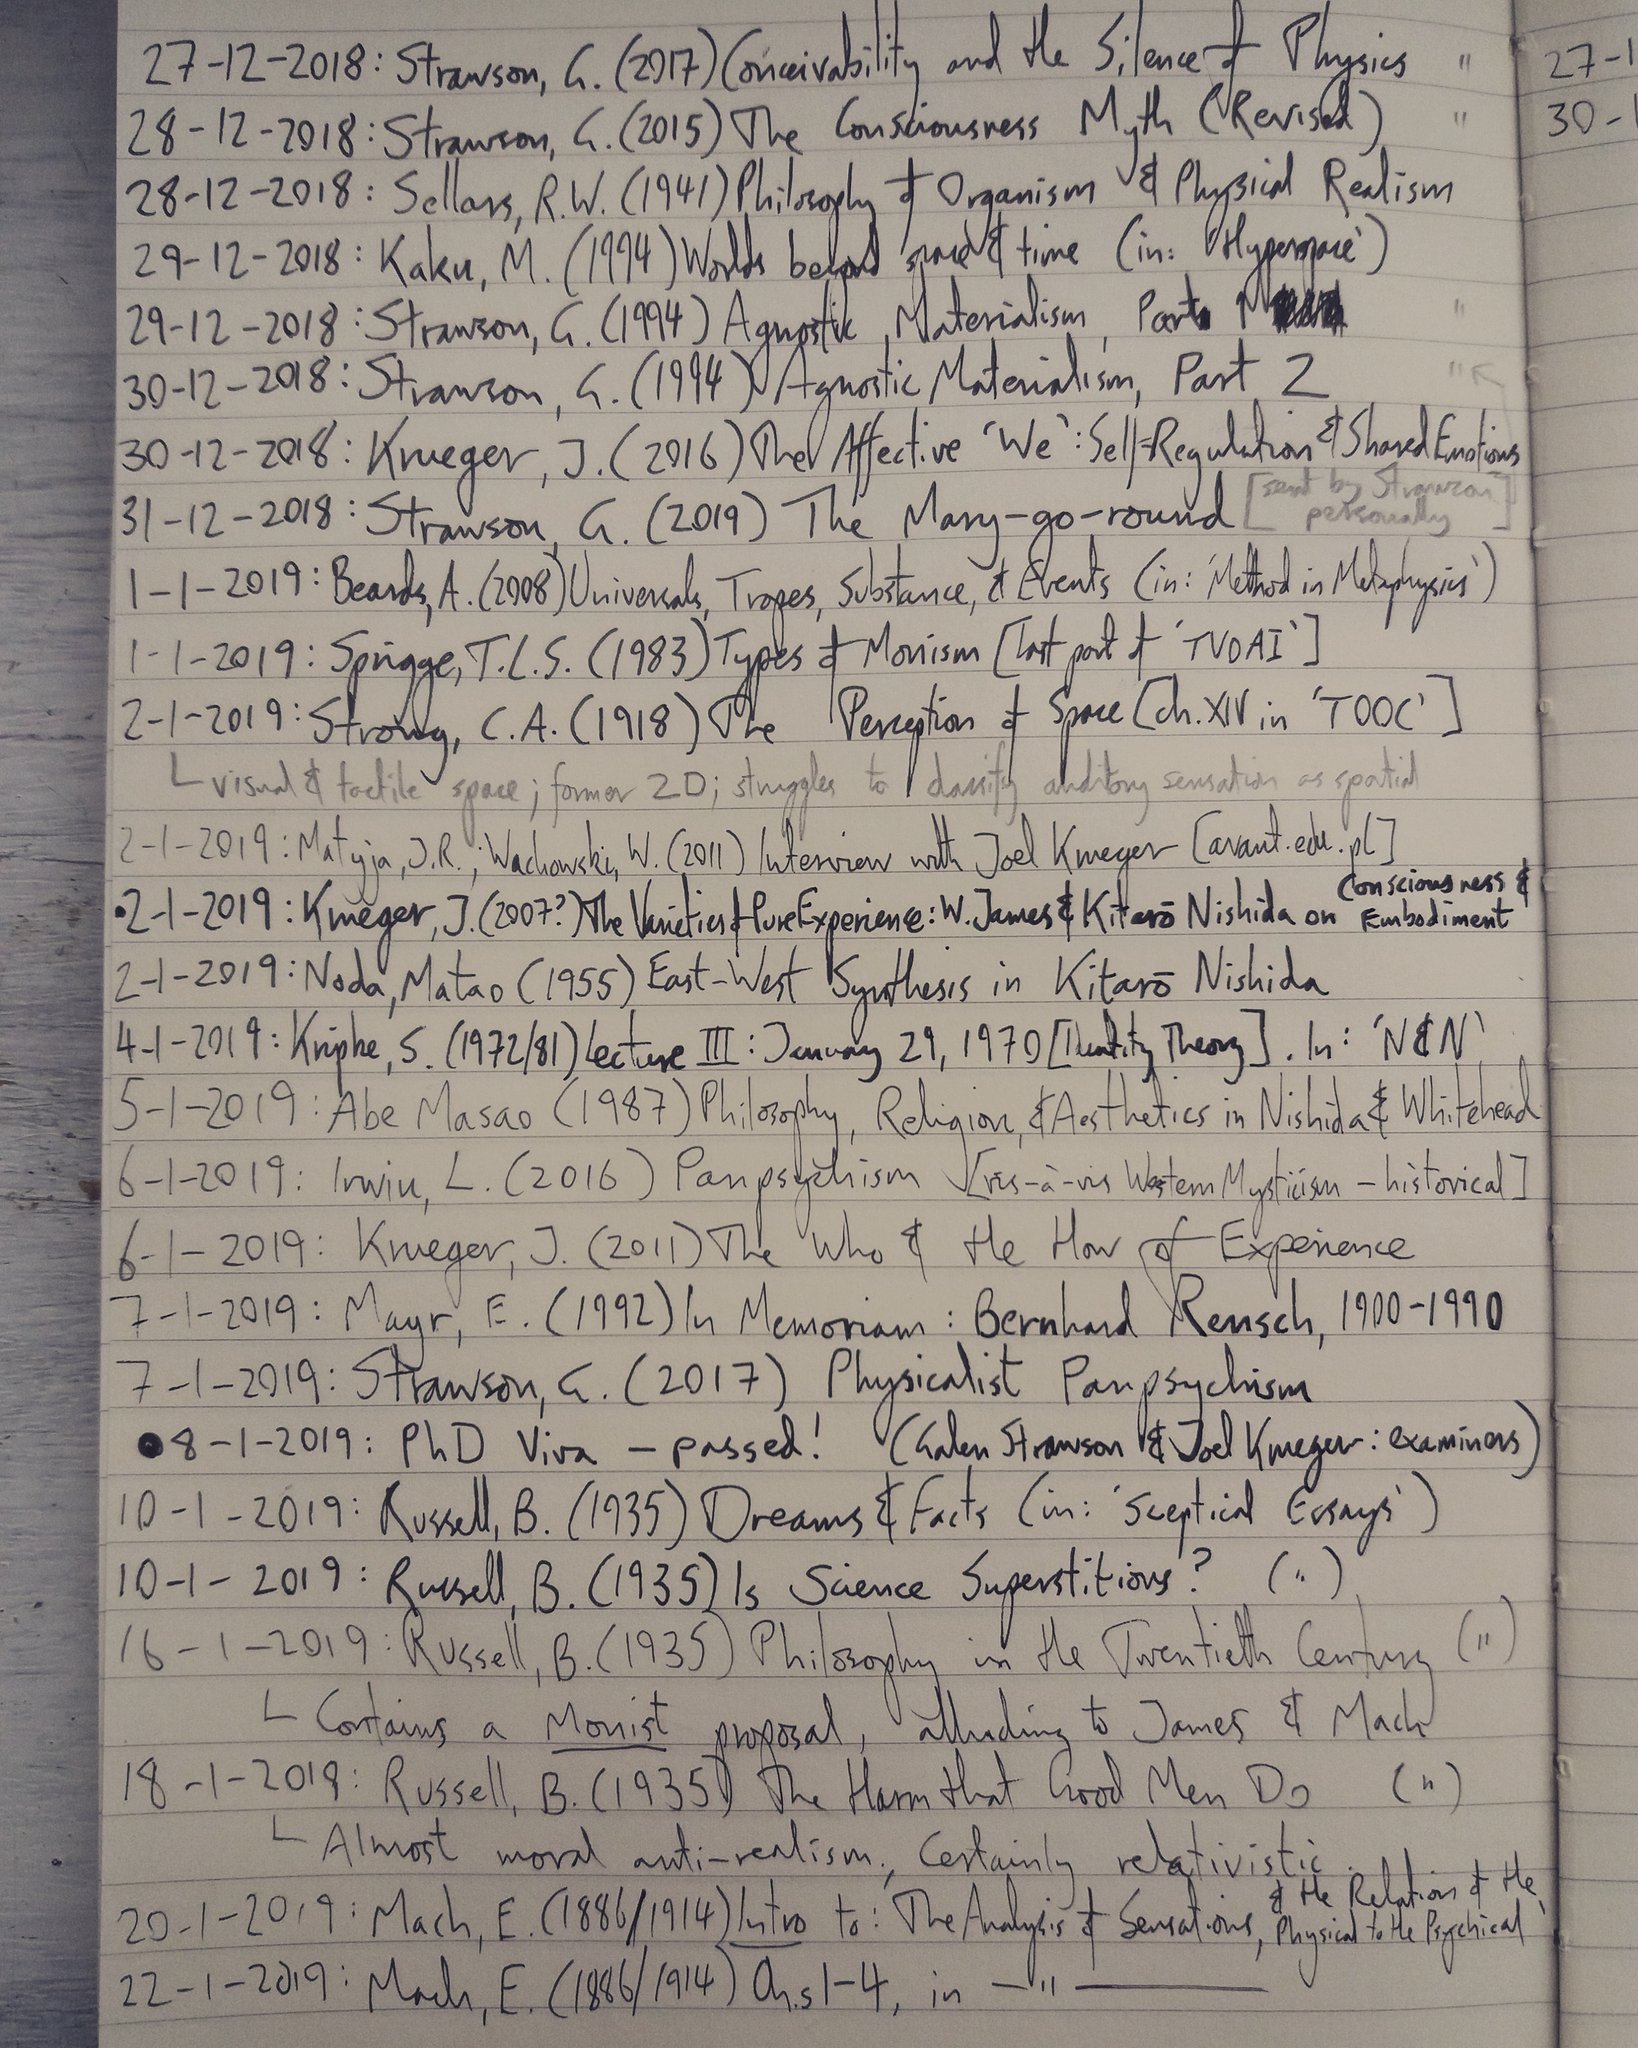 27-12-2018: Strawson, G. (2017) Conceivability and the Silence of Physics "
28-12-2018: Strawson, G. (2015) The Consciousness Myth (Revised) "
28-12-2018: Sellars, R.W. (1941) Philosophy of Organism & Physical Realism
29-12-2018: Kaku, M. (1994) Worlds beyond space & time (in: 'Hyperspace')
29-12-2018: Strawson, G. (1994) Agnostic Materialism, Part 1 "
30-12-2018: Strawson, G. (1994) Agnostic Materialism, Part 2 "
30-12-2018: Krueger, J. (2016) The Affective 'We': Self-Regulation & Shared Emotions
31-12-2018: Strawson, G. (2019) The Mary-go-round [sent by Strawson personally]
1-1-2019: Beards, A. (2008) Universals, Tropes, Substance, & Events (in: 'Method in Metaphysics')
1-1-2019: Sprigge, T.L.S. (1983) Types of Monism [last part of 'TVOAI']
2-1-2019: Strong, C.A. (1918) The Perception of Space [ch. XIV in 'TOOC']
visual & tactile space; former 2D; struggles to classify auditory sensation as spatial
2-1-2019: Matyja, J.R.; Wachowski, W. (2011) Interview with Joel Krueger [avant.edu.pl]
• 2-1-2019: Krueger, J. (2007?) The Varieties of Pure Experience: W. James & Kitarō Nishida on Consciousness & Embodiment
2-1-2019: Noda, Matao (1955) East-West Synthesis in Kitarō Nishida
4-1-2019: Kripke, S. (1972/81) Lecture III: January 29, 1970 [Identity Theory]. In: 'N&N'
5-1-2019: Abe Masao (1987) Philosophy, Religion, & Aesthetics in Nishida & Whitehead
6-1-2019: Irwin, L. (2016) Panpsychism [vis-à-vis Western Mysticism – historical]
6-1-2019: Krueger, J. (2011) The Who & the How of Experience
7-1-2019: Mayr, E. (1992) In Memoriam: Bernhard Rensch, 1900-1990
7-1-2019: Strawson, G. (2017) Physicalist Panpsychism
• 8-1-2019: PhD Viva – passed! (Galen Strawson & Joel Krueger: examiners)
10-1-2019: Russell, B. (1935) Dreams & Facts (in: 'Sceptical Essays')
10-1-2019: Russell, B. (1935) Is Science Superstitious? (")
16-1-2019: Russell, B. (1935) Philosophy in the Twentieth Century (")
Contains a Monist proposal, alluding to James & Mach
18-1-2019: Russell, B. (1935) The Harm that Good Men Do (")
Almost moral anti-realism; Certainly relativistic.
20-1-2019: Mach, E. (1886/1914) Intro to: The Analysis of Sensations, & the Relation of the Physical to the Psychical
22-1-2019: Mach, E. (1886/1914) Ch.s 1-4, in — " —
27-1
30-1